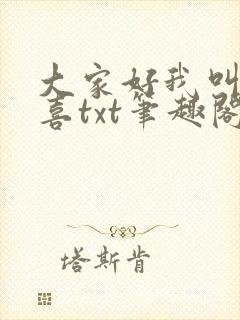 大家好我叫
喜txt笔趣阁
塔斯肯